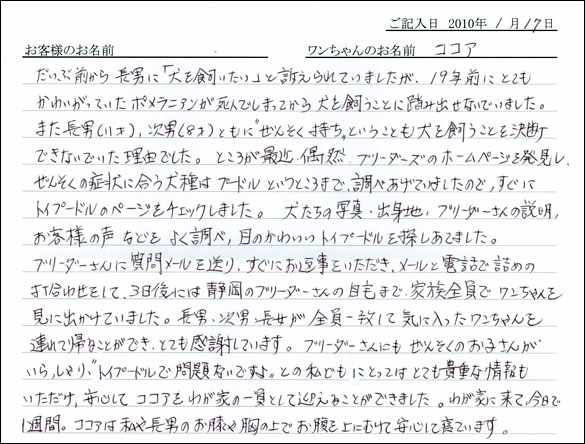 ご記入日 2010年 1月17日
お客様のお名前 ワンちゃんのお名前 ココア
だいぶ前から 長男に「犬を飼いたい」と訴えられていましたが、19年前にとても
かわいがっていた ポメラニアンが死んでしまってから 犬を飼うことに踏み出せないでいました。
また長男(11才), 次男(8才)ともに"ぜんそく持ち"ということも犬を飼うことを決断
できないでいた理由でした。ところが最近、偶然 ブリーダーズのホームページを発見し、
ぜんそくの症状に合う犬種はプードルというところまで、調べあげていましたので、すぐに
トイプードルのページをチェックしました。 犬たちの写真・出身地・ブリーダーさんの説明、
お客様の声などを よく調べ、目のかわいいトイプードルを探しあてました。
ブリーダーさんに質問メールを送り、すぐにお返事をいただき、メールと電話で詰めの
打ち合わせをして、3日後には静岡のブリーダーさんの自宅まで、家族全員でワンちゃんを
見に出かけていました。長男・次男・長女が全員一致して気に入ったワンちゃんを
連れて帰ることができ、とても感謝しています。ブリーダーさんにも ぜんそくのお子さんが
いらっしゃり、"トイプードルで問題ないですよ"との私どもにとってはとても貴重な情報も
いただけ、安心して ココアをわが家の一員として迎えることができました。わが家に来て、今日で
1週間。ココアは私や長男のお膝や胸の上でお腹を上にむけて安心して寝ています。